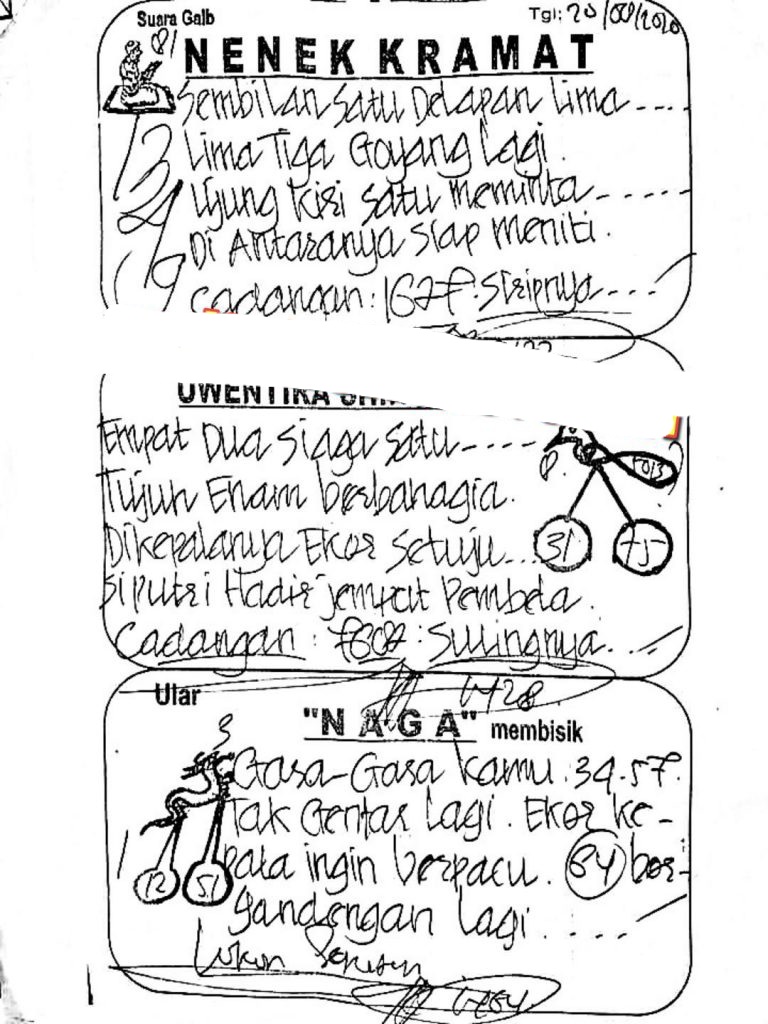 Suara Gaib
Tgl: 20/08/2020
NENEK KRAMAT
Sembilan Satu Delapan Lima ....
Lima Tiga Goyang Lagi.
Ujung Kiri Satu Meminta ......
Di Antaranya Siap Meniti.
Cadangan: 1627. Siripnya ....
Empat Dua Siaga Satu ....
Tujuh Enam berbahagia.
31
75
Dikepalanya Ekor Setuju ...
Siputri Hadir jemput Pembela.
Cadangan: 7602: Sulingnya ....
Ular
"NAGA" membisik
Gasa-Gasa kamu. 34.57.
Tak Gentar Lagi. Ekor ke-
pala ingin berpacu. 64 ber-
12
51
gandengan Lagi ....